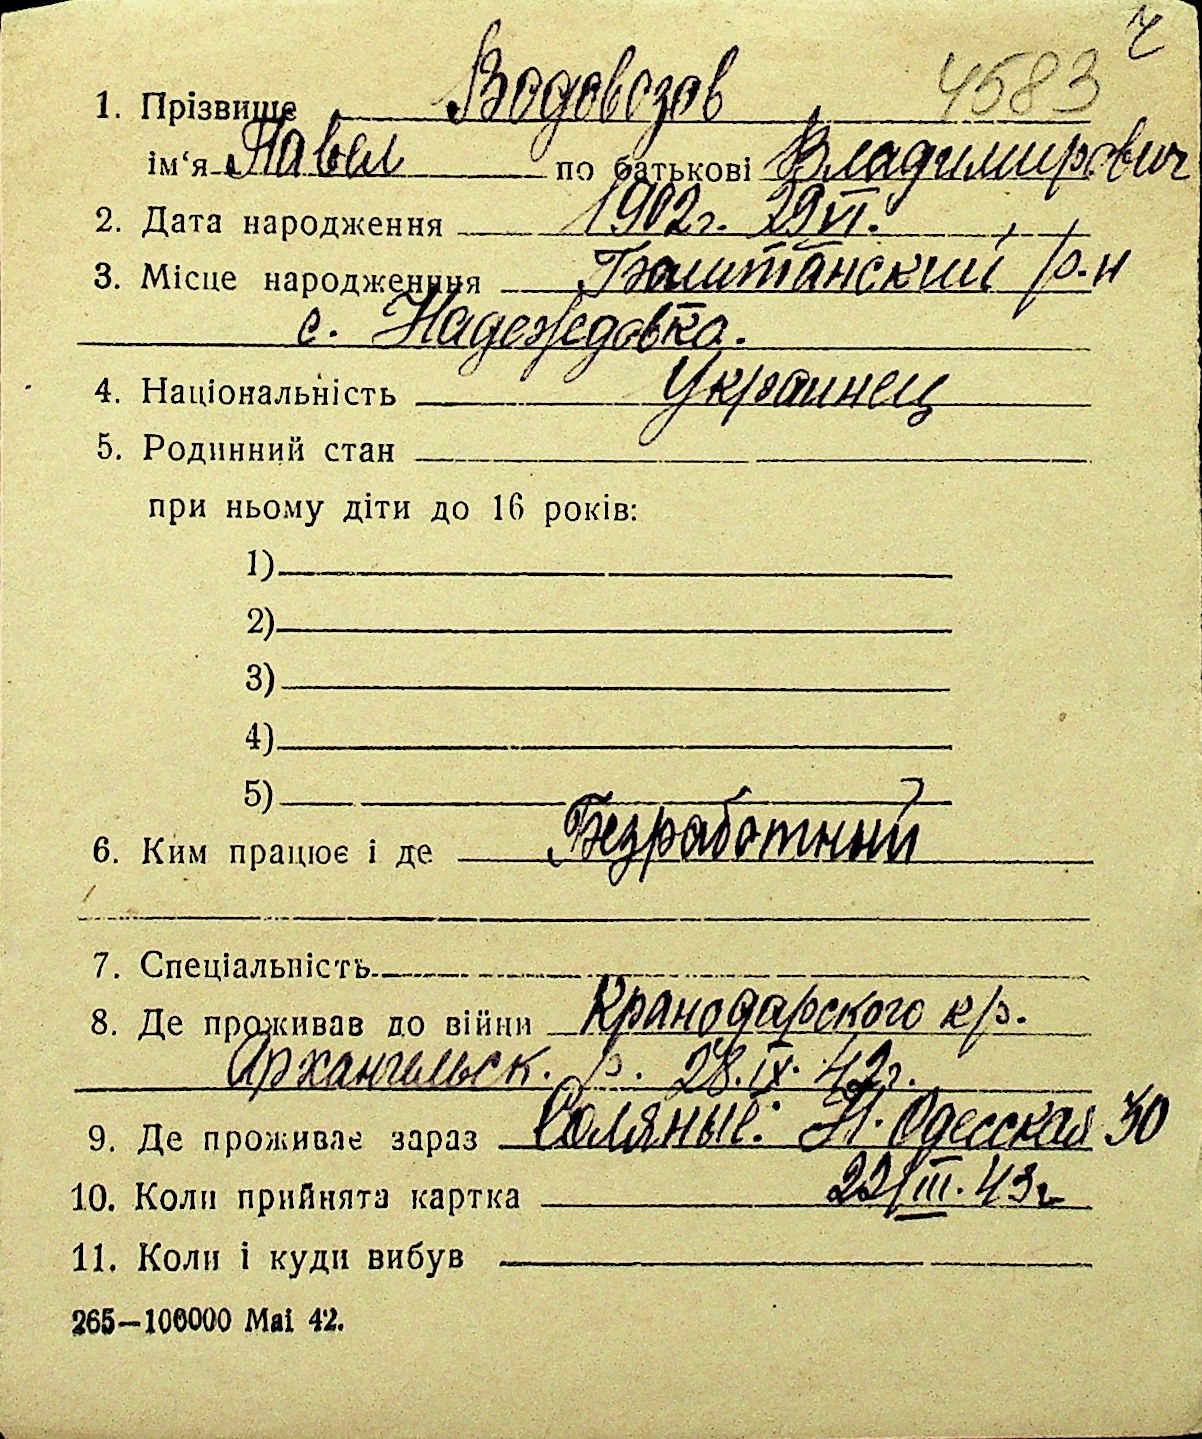 ч
4583
1. Прізвище Водовозов
ім‘я Павел по батькові Владимирович
2. Дата народження 1902г. 29 VI.
3. Місце народженння Баштанский р-н
с. Надеждовка.
4. Національність Украинец
5. Родинний стан
при ньому діти до 16 років:
1)
2)
3)
4)
5)
6. Ким працює і де Безработний
7. Спеціальність
8. Де проживав до війни Кранодарского кр.
Архангельск. р. 28. IX. 42г.
9. Де проживає зараз Соляные. Н. Одесская 30
10. Коли прийнята картка 22/III. 43г
11. Коли і куди вибув
265—100000 Mai 42.